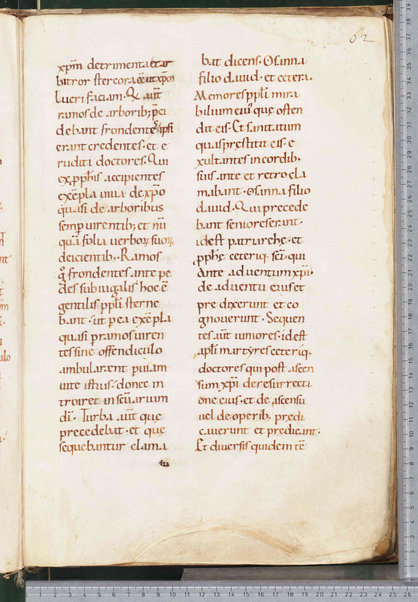 62
xpm detrimenta et ar
bitror stercora
lucri faciam. Qui aut
ramos de arborib; p̄ci
debant frondentes ipsi
erant credentes. et e
ruditi doctores. Qui
ex pphis accipientes
exēpla viua de xpo
quasi de arboribus
semp uirentib; et nū
quā folia uerboꝝ suoꝝ
deicientib; Ramos
g frondentes ante pe
des subiugalis hoc ē
gentilis ppli sterne
bant. ut p ea exēpla
quasi p ramos uiren
tes sine offendiculo
ambularent puiam
uite istius. donec in
troiret in seūuarium
dī. Turba aut que
precedebat. et que
sequebantur clama
bat dicens. Osanna
filio dauid. et cetera.
Memores ppli mira
bilium eius que osten
dit eis. Et sanitatum
quas prestitit eis. e
xultantes in cordib;
suis. ante et retro cla
mabant. Osanna filio
dauid. Qui precede
bant seniores erant.
idest patriarche. et
pphę ceteriq; sci. qui
Ante aduentum xpi.
de aduentu eius et
predixerunt et co
gnouerunt. Sequen
tes aut iuniores. idest
apli martyres ceteriq;
doctores qui post ascen
sum xpi de resurrecti
one eius. et de ascensu
uel de operib; predi
cauerunt et predicant.
Et diuersis quidem tē